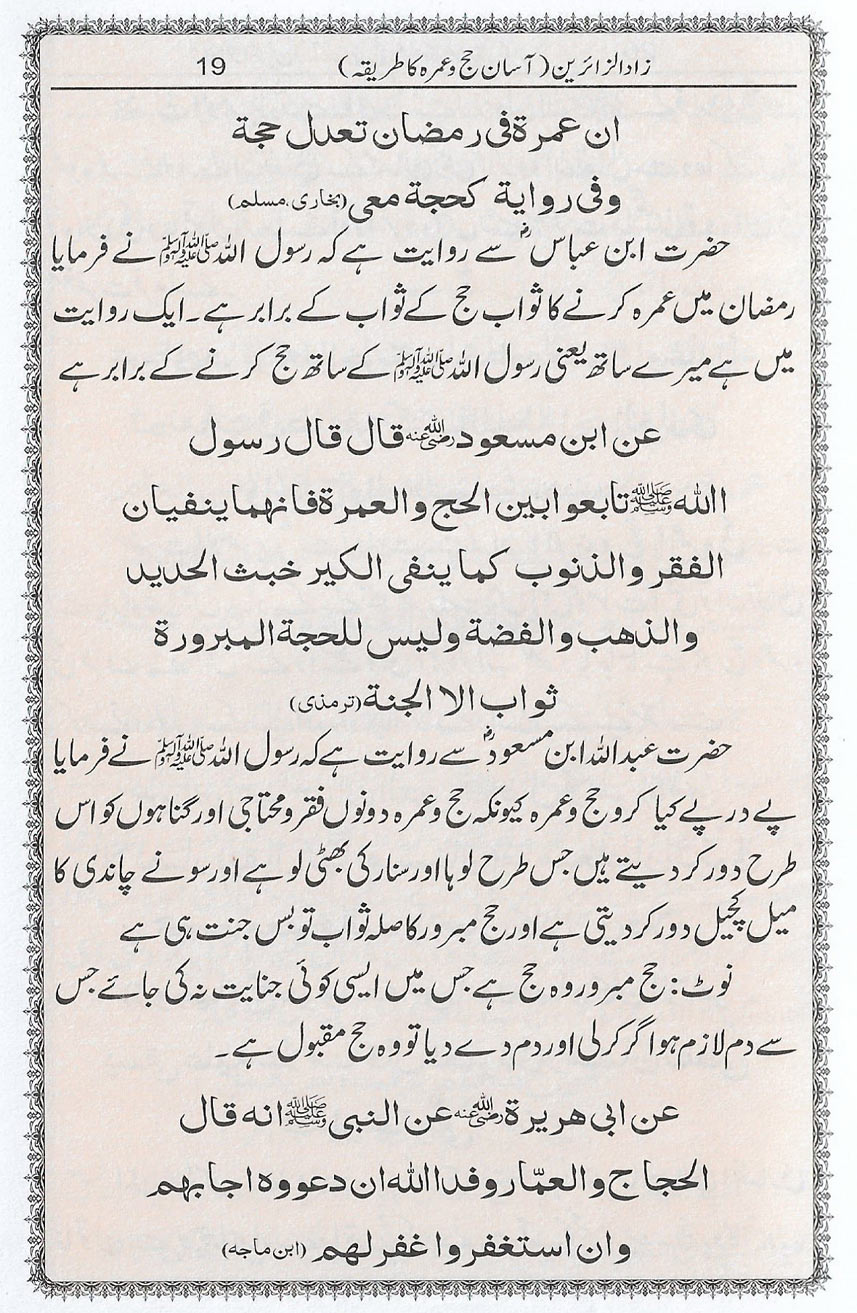 زاد الزائرین (آسان حج و عمرہ کا طریقہ) 19
ان عمرة فی رمضان تعدل حجة
وفی روایة کحجة معی (بخاری، مسلم)
حضرت ابن عباسؓ سے روایت ہے کہ رسول اللہ ﷺ نے فرمایا
رمضان میں عمرہ کرنے کا ثواب حج کے ثواب کے برابر ہے۔ ایک روایت
میں ہے میرے ساتھ یعنی رسول اللہ ﷺ کے ساتھ حج کرنے کے برابر ہے
عن ابن مسعود رضی اللہ عنہ قال قال رسول
االله ﷺ تابعوا بین الحج والعمرة فانهما ینفیان
الفقر والذنوب کما ینفی الکیر خبث الحدید
والذهب والفضة ولیس للحجة المبرورة
ثواب الا الجنة (ترمذی)
حضرت عبداللہ ابن مسعودؓ سے روایت ہے کہ رسول اللہ ﷺ نے فرمایا
پے در پے کیا کرو حج و عمرہ کیونکہ حج و عمرہ دونوں فقر و محتاجی اور گناہوں کو اس
طرح دور کر دیتے ہیں جس طرح لوہا اور سنار کی بھٹی لوہے اور سونے چاندی کا
میل کچیل دور کر دیتی ہے اور حج مبرور کا صلہ ثواب تو بس جنت ہی ہے
نوٹ: حج مبرور وہ حج ہے جس میں ایسی کوئی جنایت نہ کی جائے جس
سے دم لازم ہو اگر کر لی اور دم دے دیا تو وہ حج مقبول ہے۔
عن ابی هریرة رضی اللہ عنہ عن النبی ﷺ انه قال
الحجاج والعمّار وفد االله ان دعووه اجابهم
وان استغفروا غفرلهم (ابن ماجہ)